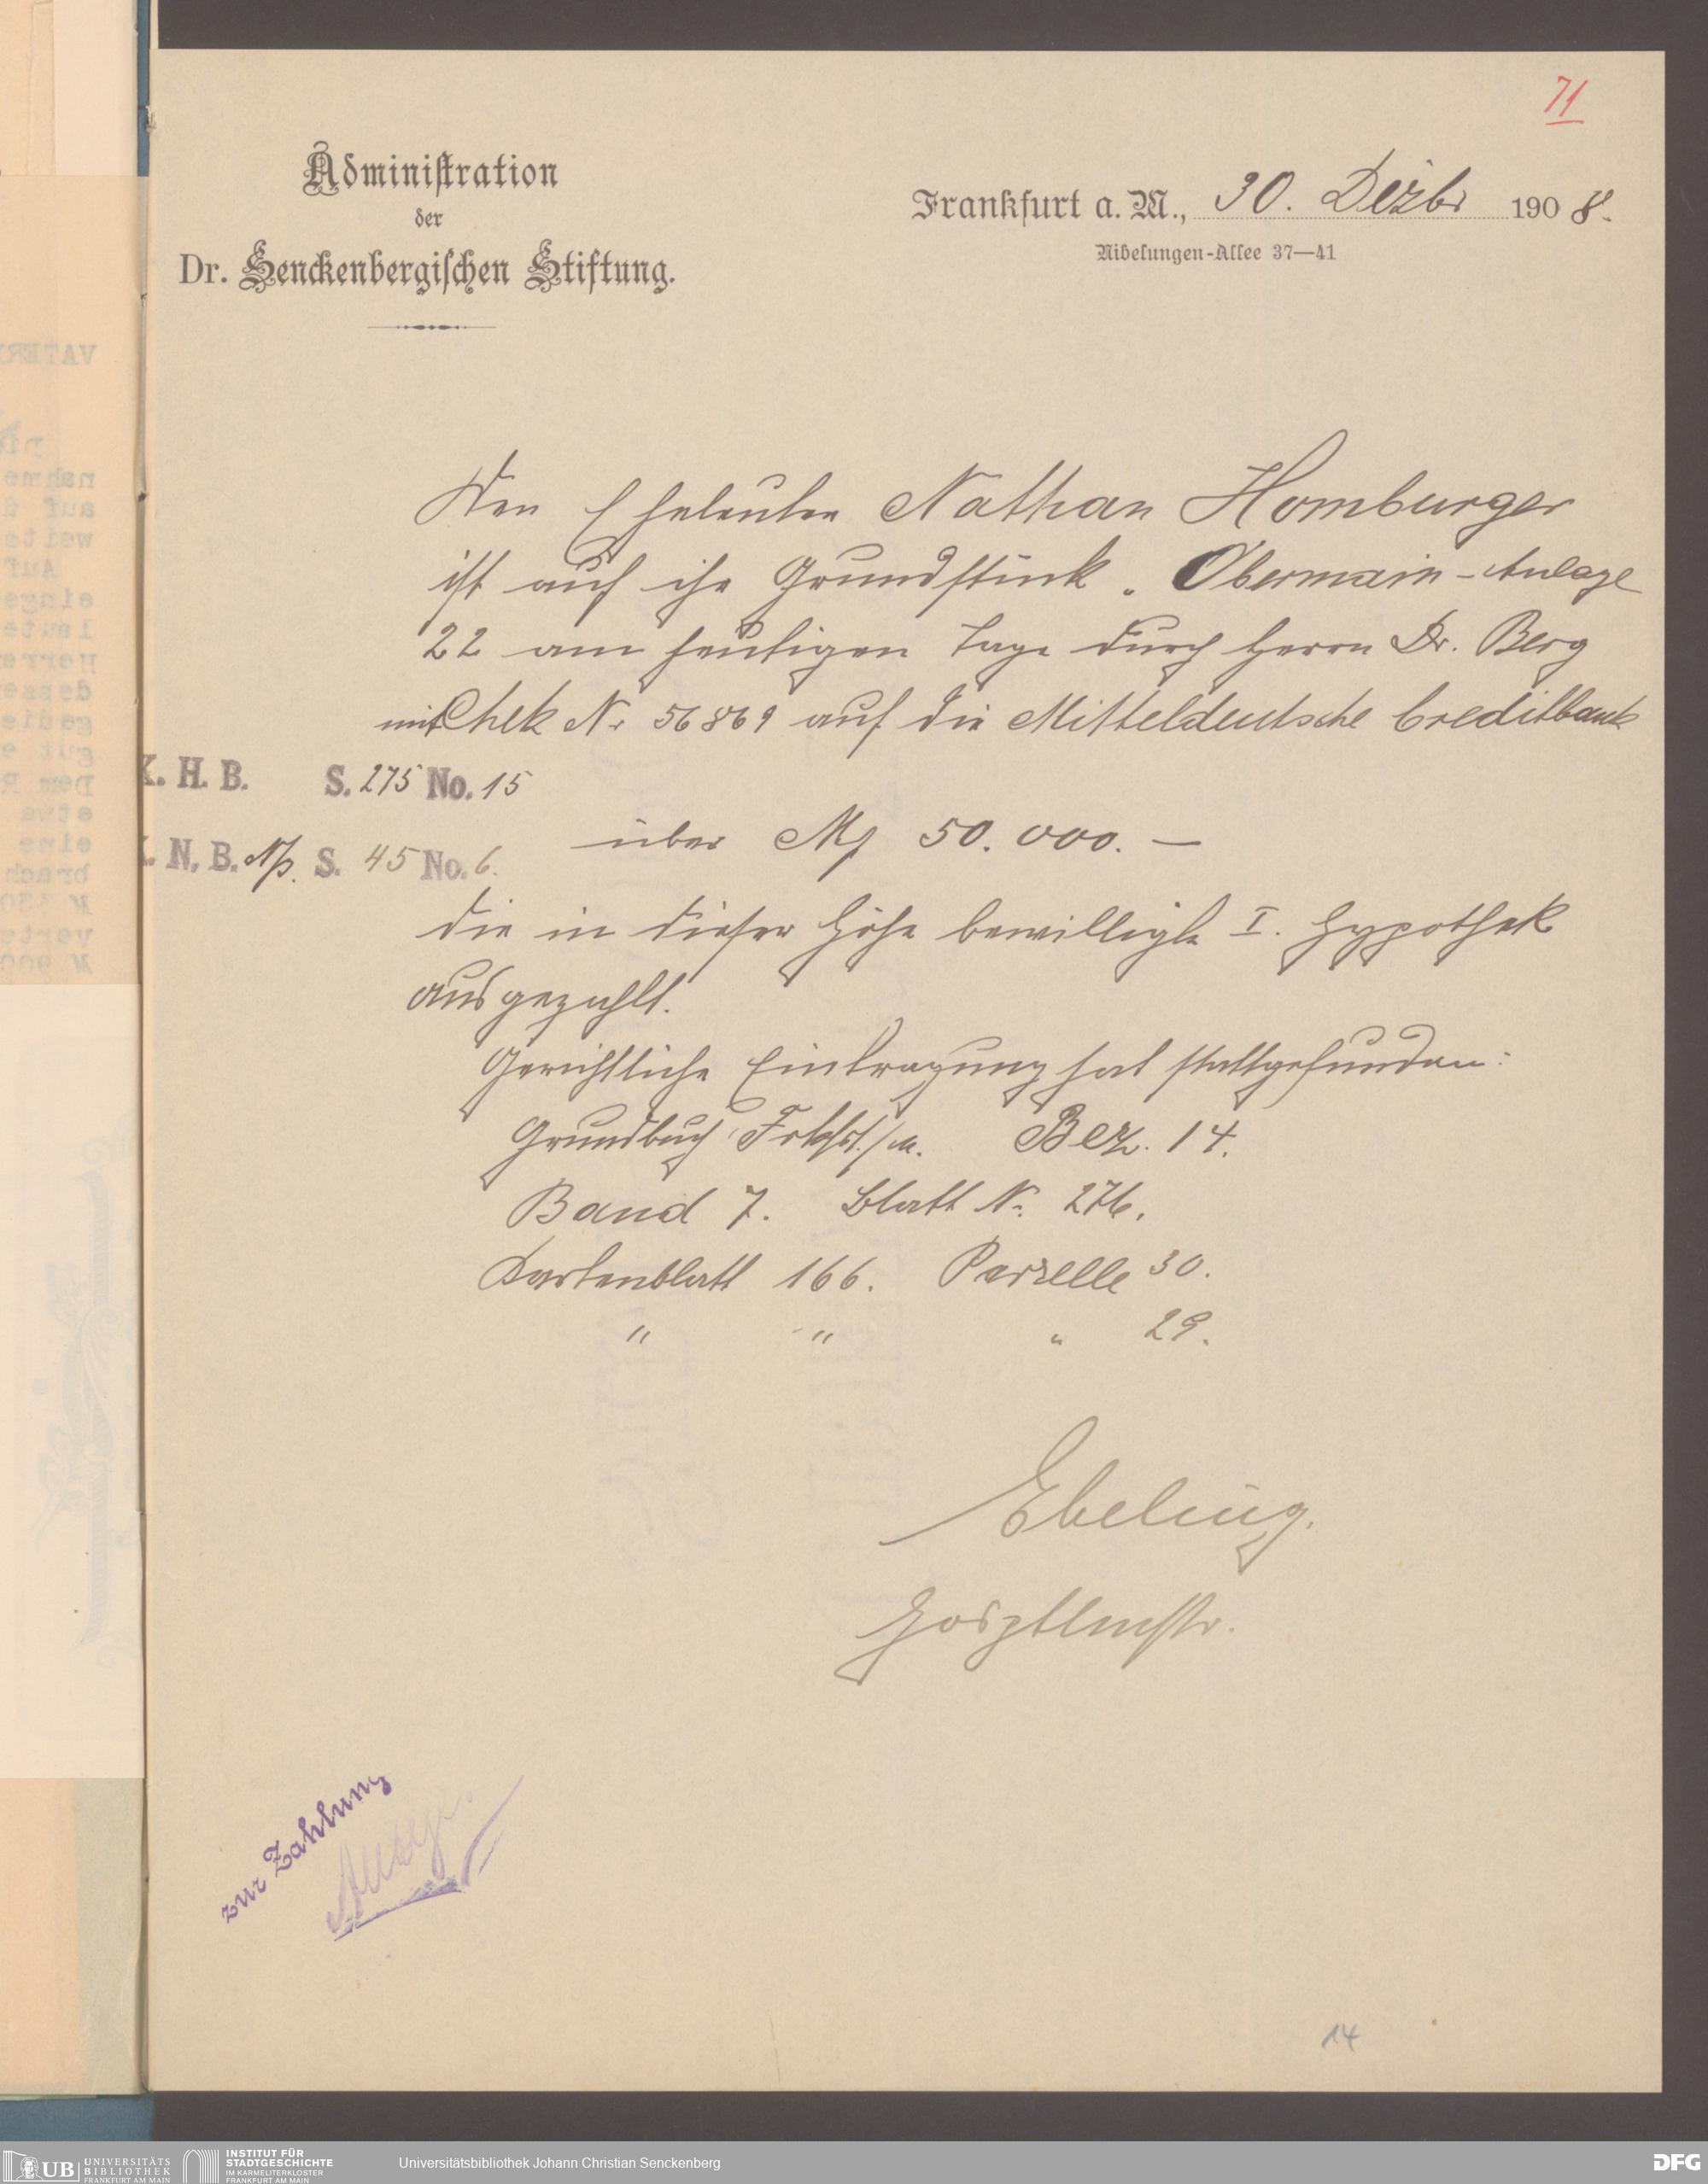 71
Administration
der
Dr. Senckenbergischen Stiftung.
Frankfurt a. M., 30. Dezbr 1908.
Nibelungen-Allee 37—41
Den Eheleuten Nathan Homburger
ist auf ihr Grundstück Obermain-Anlage
22 am heutigen Tage durch Herrn Dr. Berg
mit Chek Nr 56869 auf die Mitteldeutsche Creditbank
K. H. B. S. 275 No. 15
über M 50.000.—
N. B. S. 45 No. 6.
die in dieser Höhe bewilligte I. Hypothek
ausgezahlt.
Gerichtliche Eintragung hat stattgefunden:
Grundbuch Frkfrt./M. Bez. 14.
Band 7. Blatt Nr. 276.
Kartenblatt 166. Parzelle 30.
" " " 29.
Ebeling.
Hosptlmstr.
zur Zahlung
14
UB UNIVERSITÄTS
BIBLIOTHEK
FRANKFURT AM MAIN
INSTITUT FÜR
STADTGESCHICHTE
IM KARMELITERKLOSTER
FRANKFURT AM MAIN
Universitätsbibliothek Johann Christian Senckenberg
DFG